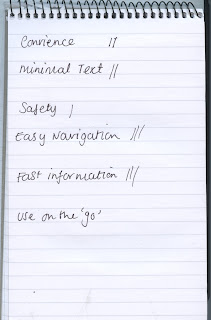 Convience II
Minimal Text II
Safety I
Easy Navigation III
Fast information III
Use on the 'go'